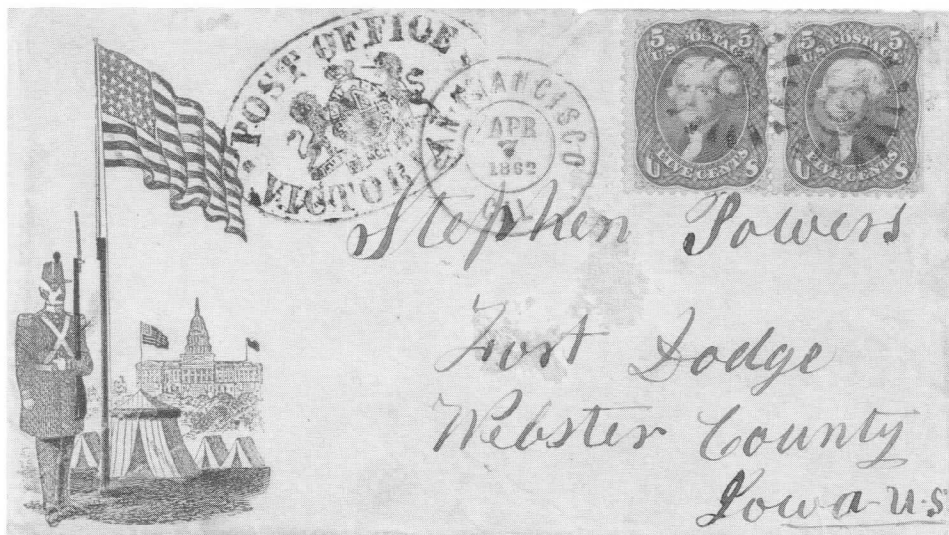 POST OFFICE
VICTORIA
SAN FRANCISCO
APR
7
1862
CAL
5 5
U.S. POSTAGE
FIVE CENTS
U S
5 5
U.S. POSTAGE
FIVE CENTS
U S
Stephen Powers
Fort Dodge
Webster County
Iowa U.S